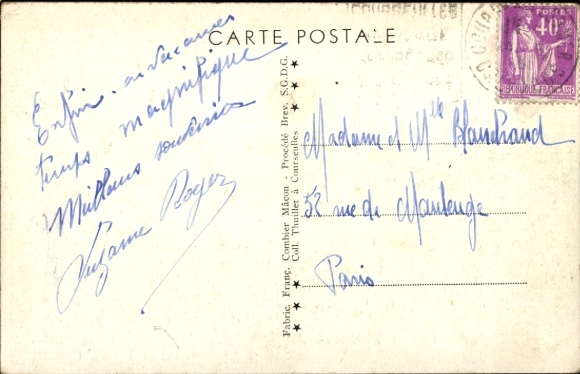 CARTE POSTALE
Enfin en vacances
temps magnifique
Meilleurs souvenirs
Suzanne Roger
Fabric. Franç. Combier Mâcon - Procédé Brev. S.G.D.G.
Coll. Thuillet à Courseulles
POSTES
40c
REPUBLIQUE FRANÇAISE
Madame et Mlle Blanchand
52 rue de Maubeuge
Paris